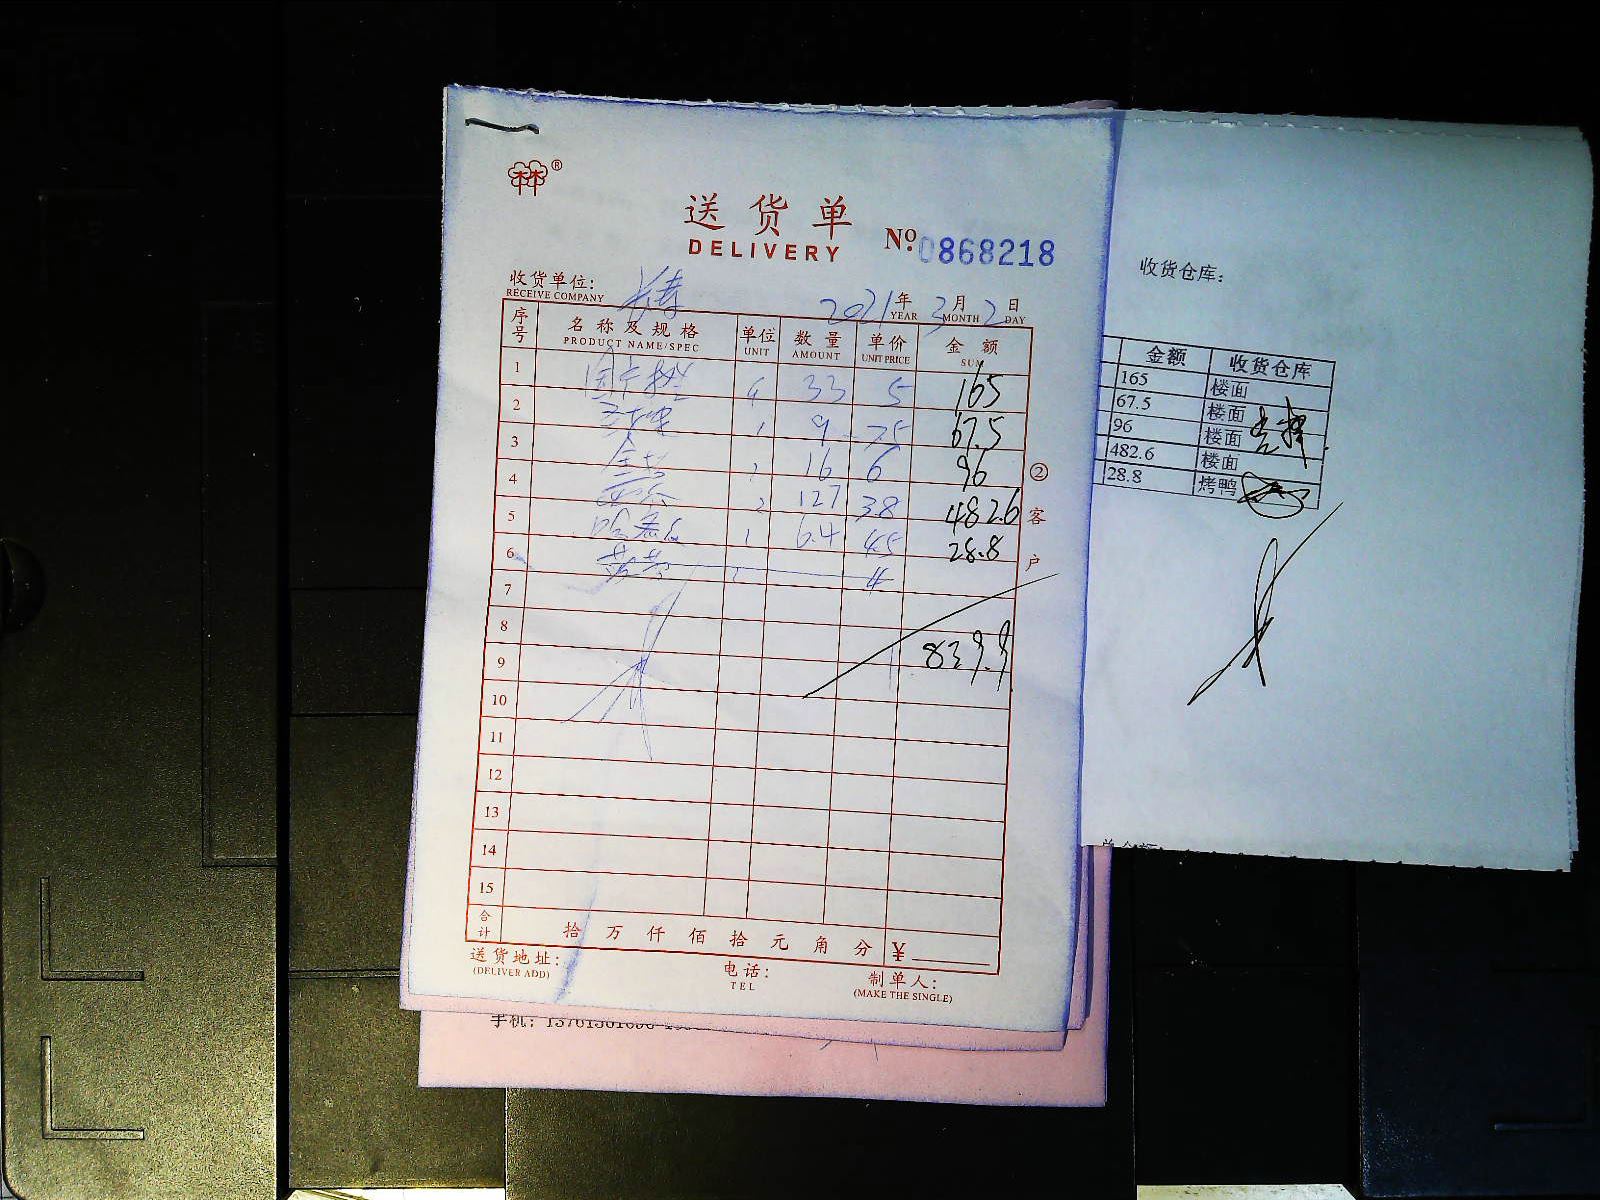 送货单
DELIVERY
№ 0868218
收货单位:
RECEIVE COMPANY
2021年 3月 2日
YEAR MONTH DAY
序号 名称及规格 单位 数量 单价 金额
PRODUCT NAME/SPEC UNIT AMOUNT UNIT PRICE SUM
1 33 5 165
2 9 7.5 67.5
3 16 6 96
4 2 127 3.8 482.6
5 哈密瓜 1 6.4 4.5 28.8
6
7
8
839.9
9
10
11
12
13
14
15
合计 拾 万 仟 佰 拾 元 角 分 ¥
送货地址:
(DELIVER ADD)
电话:
TEL
制单人:
(MAKE THE SINGLE)
②客户
收货仓库:
金额 收货仓库
165 楼面
67.5 楼面
96 楼面
482.6 楼面
28.8 烤鸭
手机: